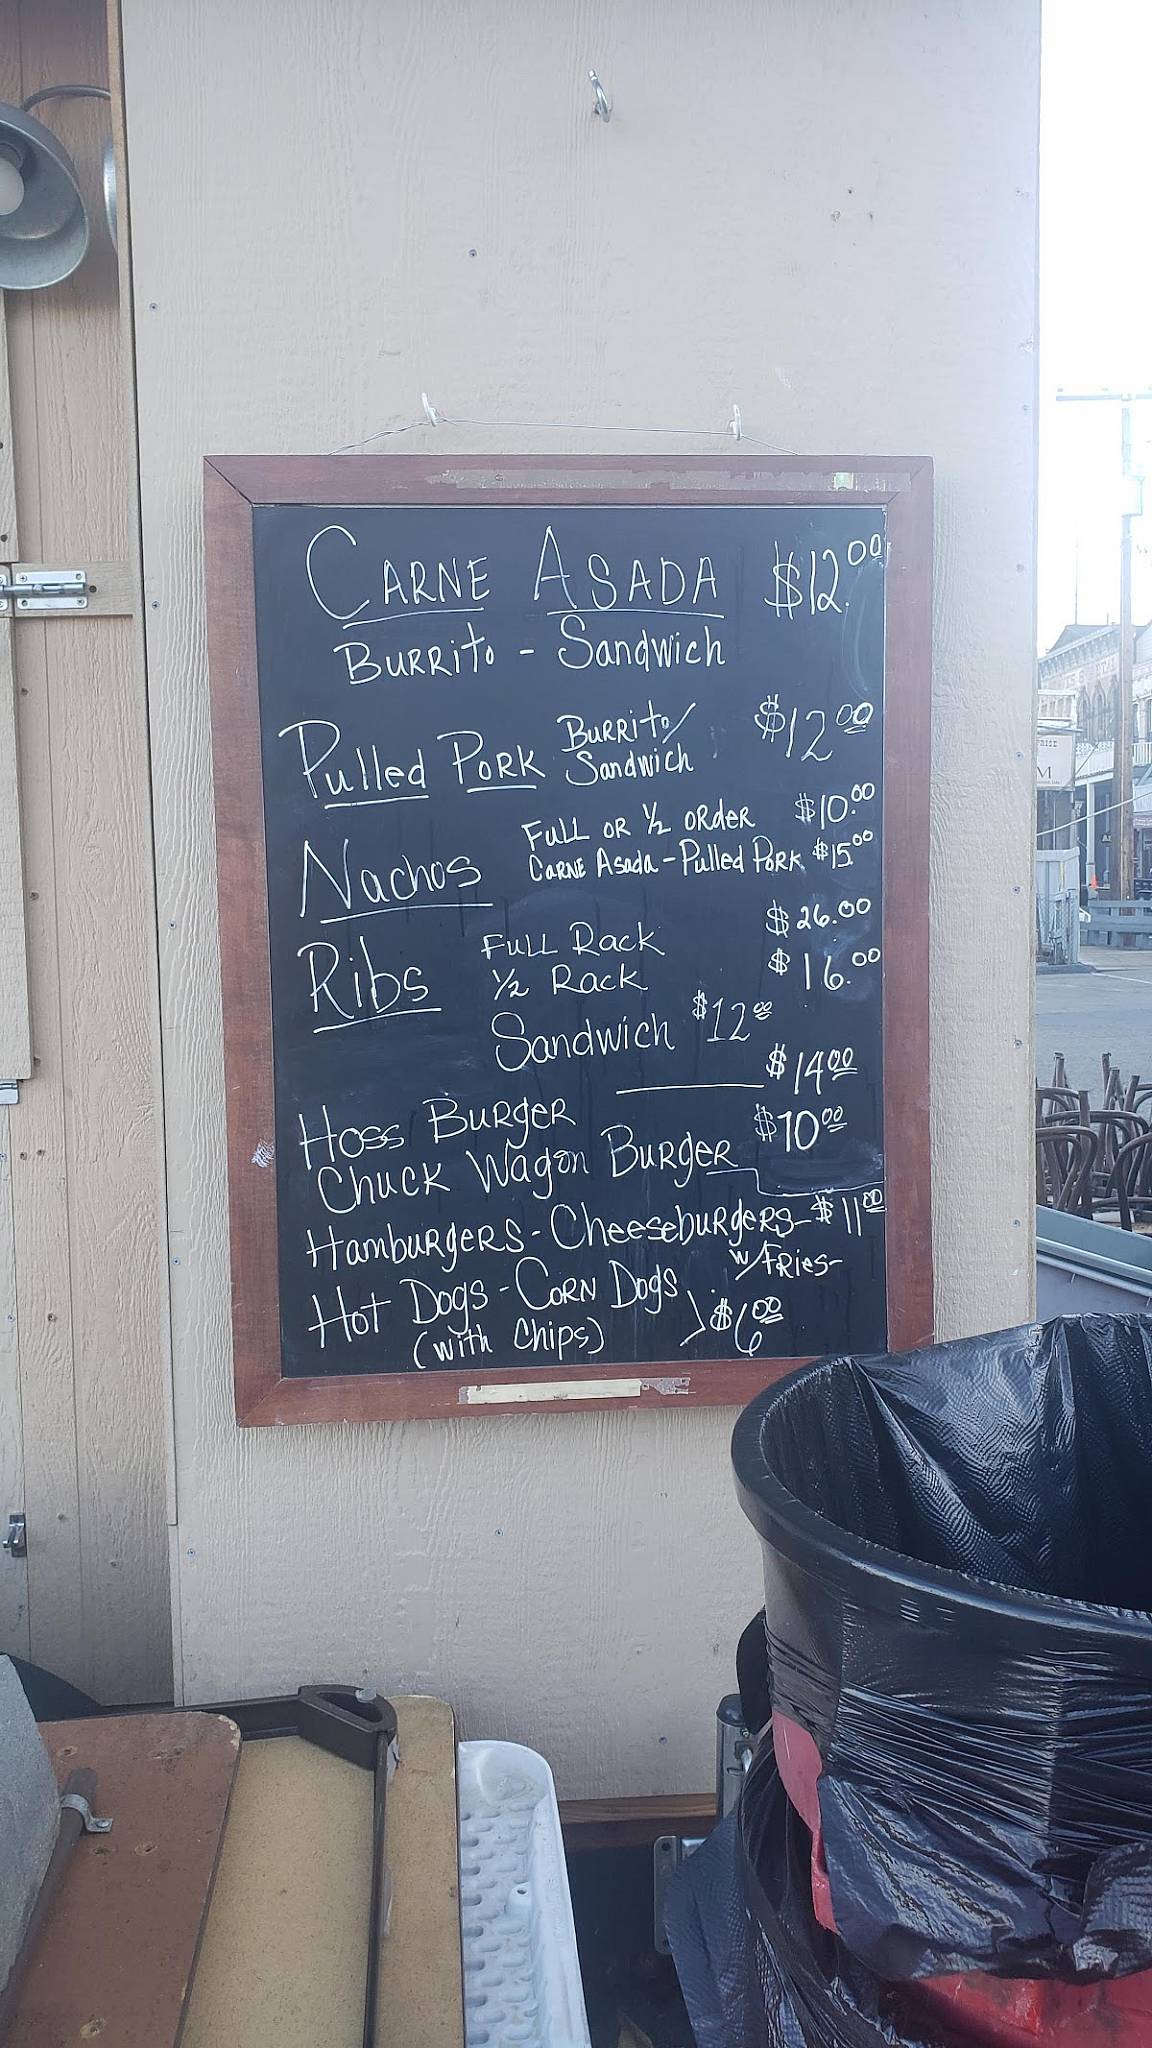 CARNE ASADA $12.00
BURRITO - Sandwich
Pulled PORK BURRITO/ Sandwich $12 00
Nachos FULL OR 1/2 ORdeR $10.00
CARNE Asada - Pulled PORK $15.00
Ribs FULL Rack $26.00
1/2 Rack $16.00
Sandwich $12 00
Hoss BURgER $14 00
Chuck Wagon BURgER $10.00
HambURgERS - CheesebURgERS - $11 00
w/FRies-
Hot Dogs - CORN Dogs
(with Chips) } $6 00